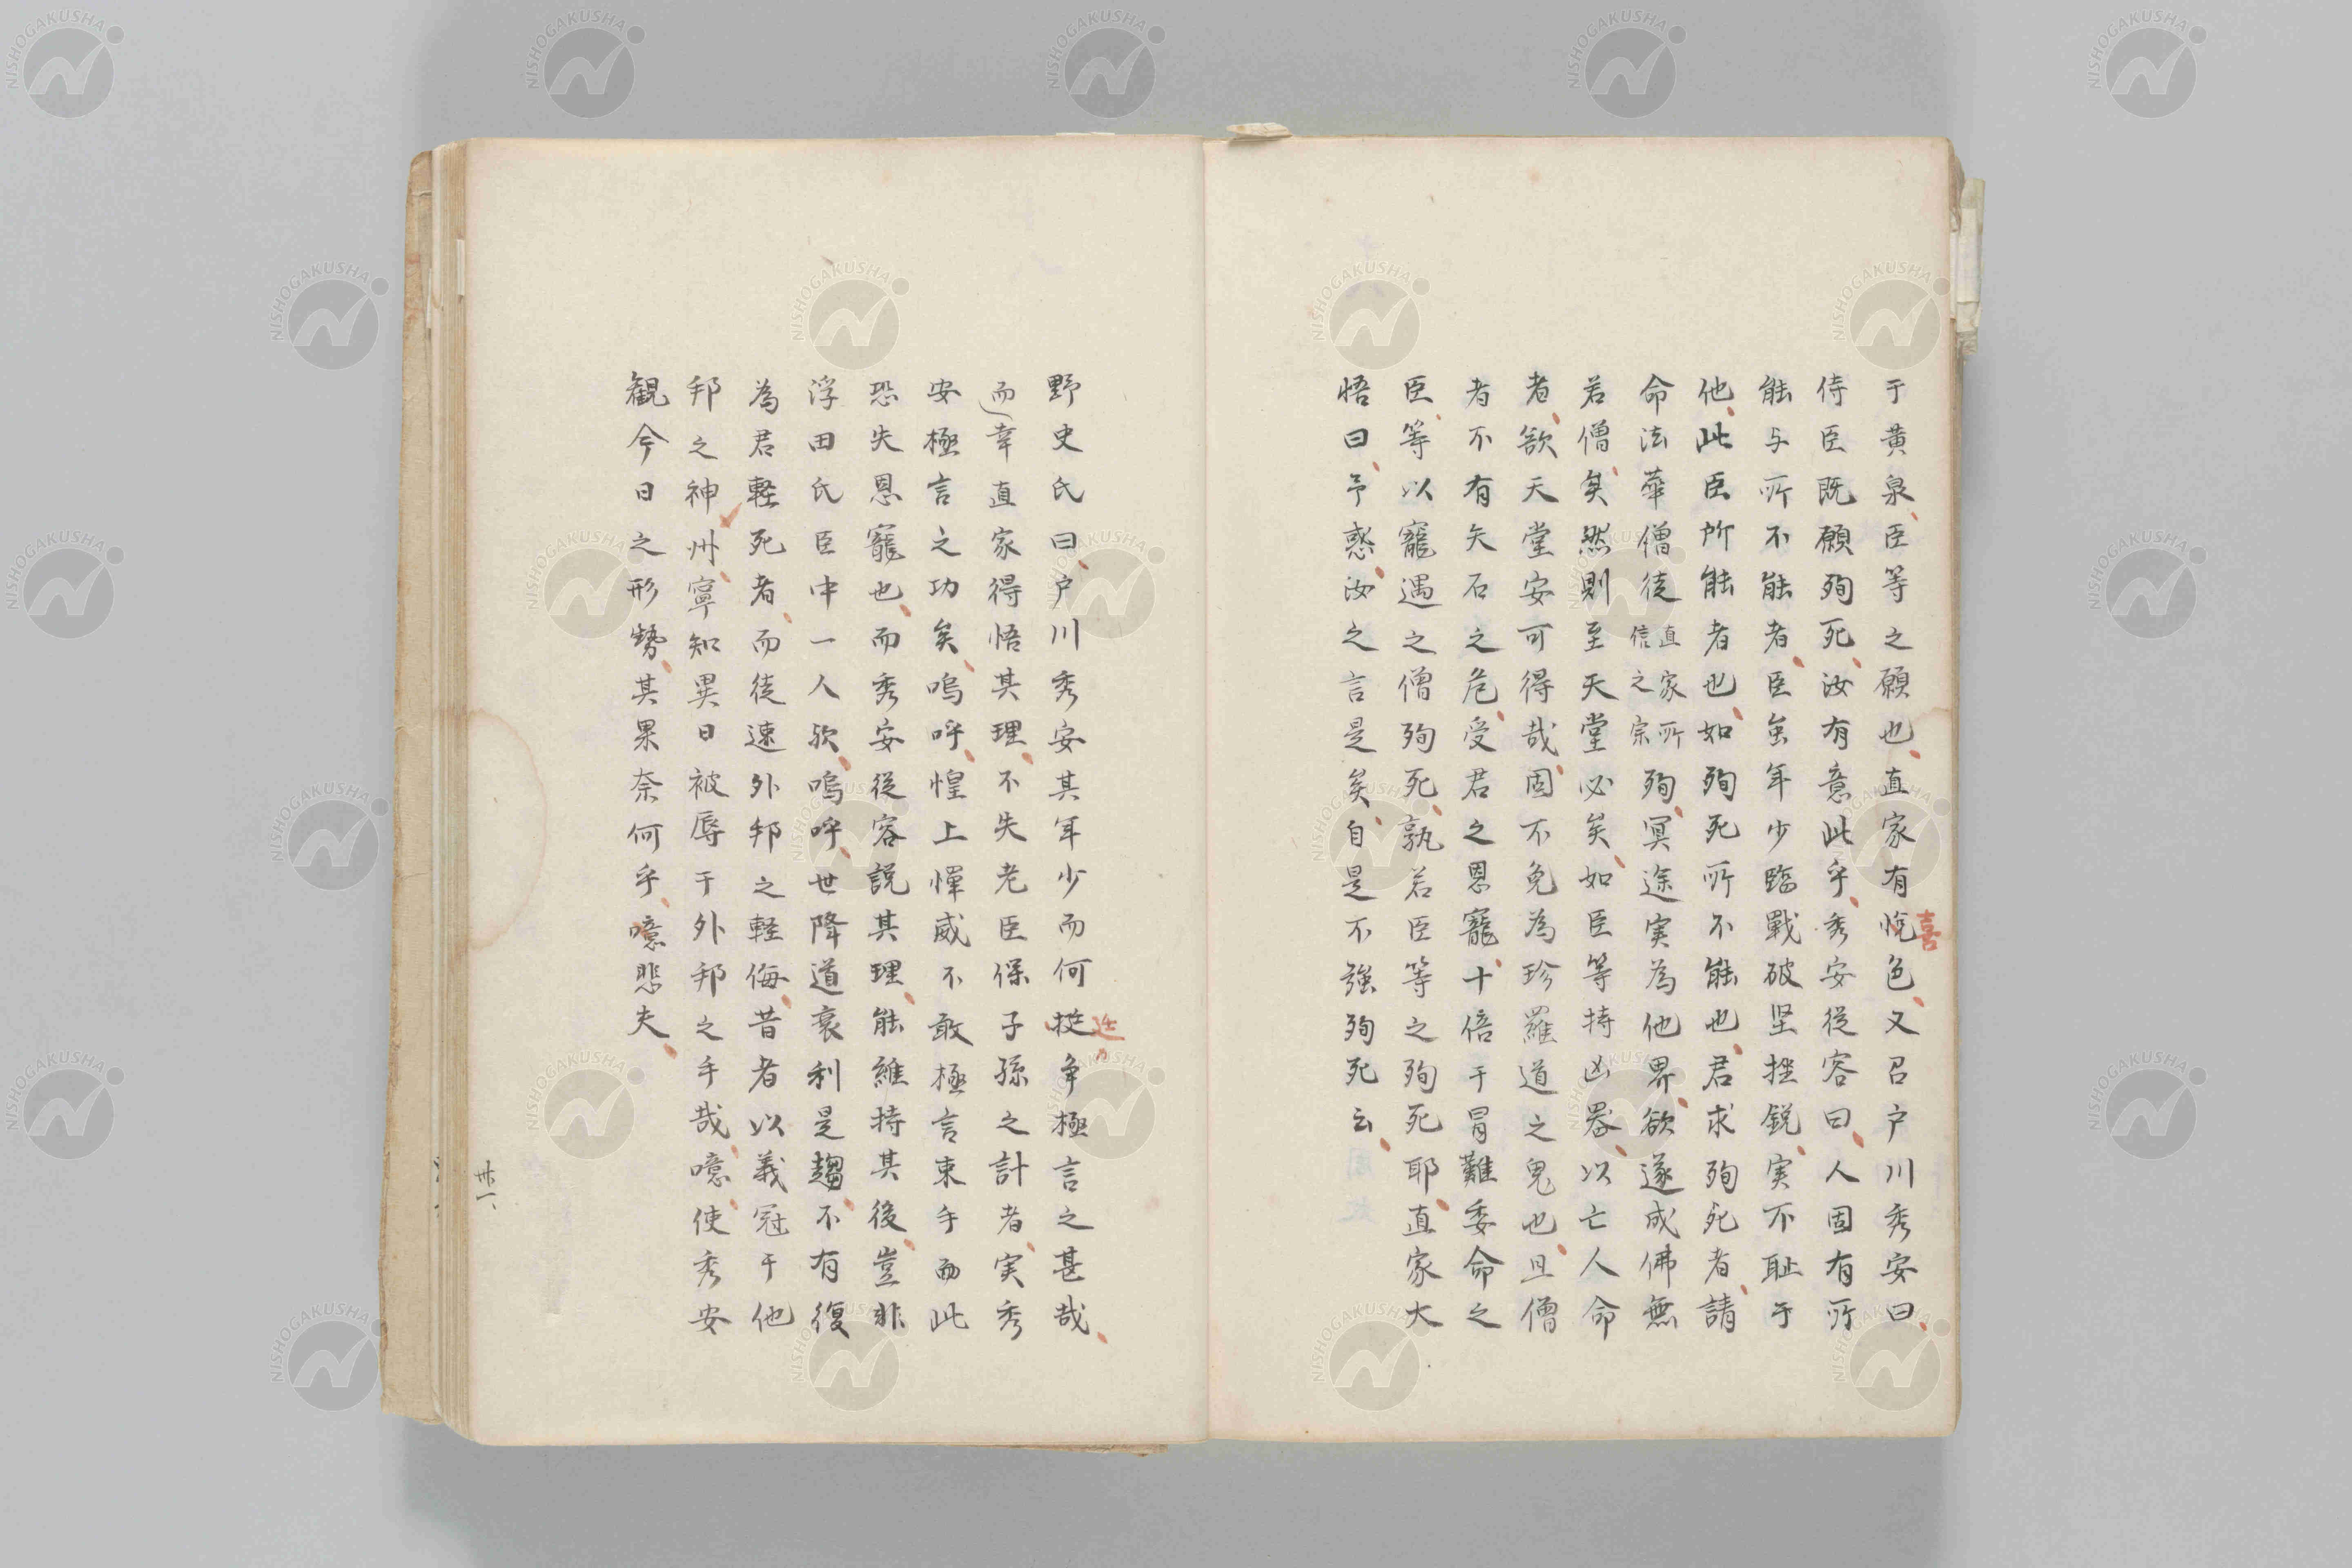 于黄泉、臣等之願也、直家有悦色、又召戸川秀安曰、
喜
侍臣既願殉死、汝有意此乎、秀安従容曰、人固有所
能与所不能者、臣虽年少臨戰破坚挫鋭、実不耻于
他、此臣所能者也、如殉死所不能也、君求殉死者、請
命法華僧徒直家所信之宗殉、冥途実為他界、欲遂成佛無
若僧矣、然則至天堂必矣、如臣等持凶器、以亡人命
者、欲天堂安可得哉、固不免為珍羅道之鬼也、且僧
者不有矢石之危、受君之恩寵、十倍于冒難委命之
臣、等以寵遇之僧殉死、孰若臣等之殉死耶、直家大
悟曰、予惑、汝之言是矣、自是不強殉死云、
野史氏曰、戸川秀安其年少而何挺争極言之甚哉、
廷
而幸直家得悟其理、不失老臣保子孫之計者、実秀
安極言之功矣、嗚呼、惶上憚威不敢極言束手而此
恐失恩寵也、而秀安従容説其理、能維持其後、豈非
浮田氏臣中一人欤、嗚呼、世降道衰利是趨、不有復
為君軽死者、而徒速外邦之軽侮、昔者以義冠于他
邦之神州、寧知異日被辱于外邦之手哉、噫、使秀安
観今日之形勢、其果奈何乎、噫悲夫、
卅一、
NISHOGAKUSHA